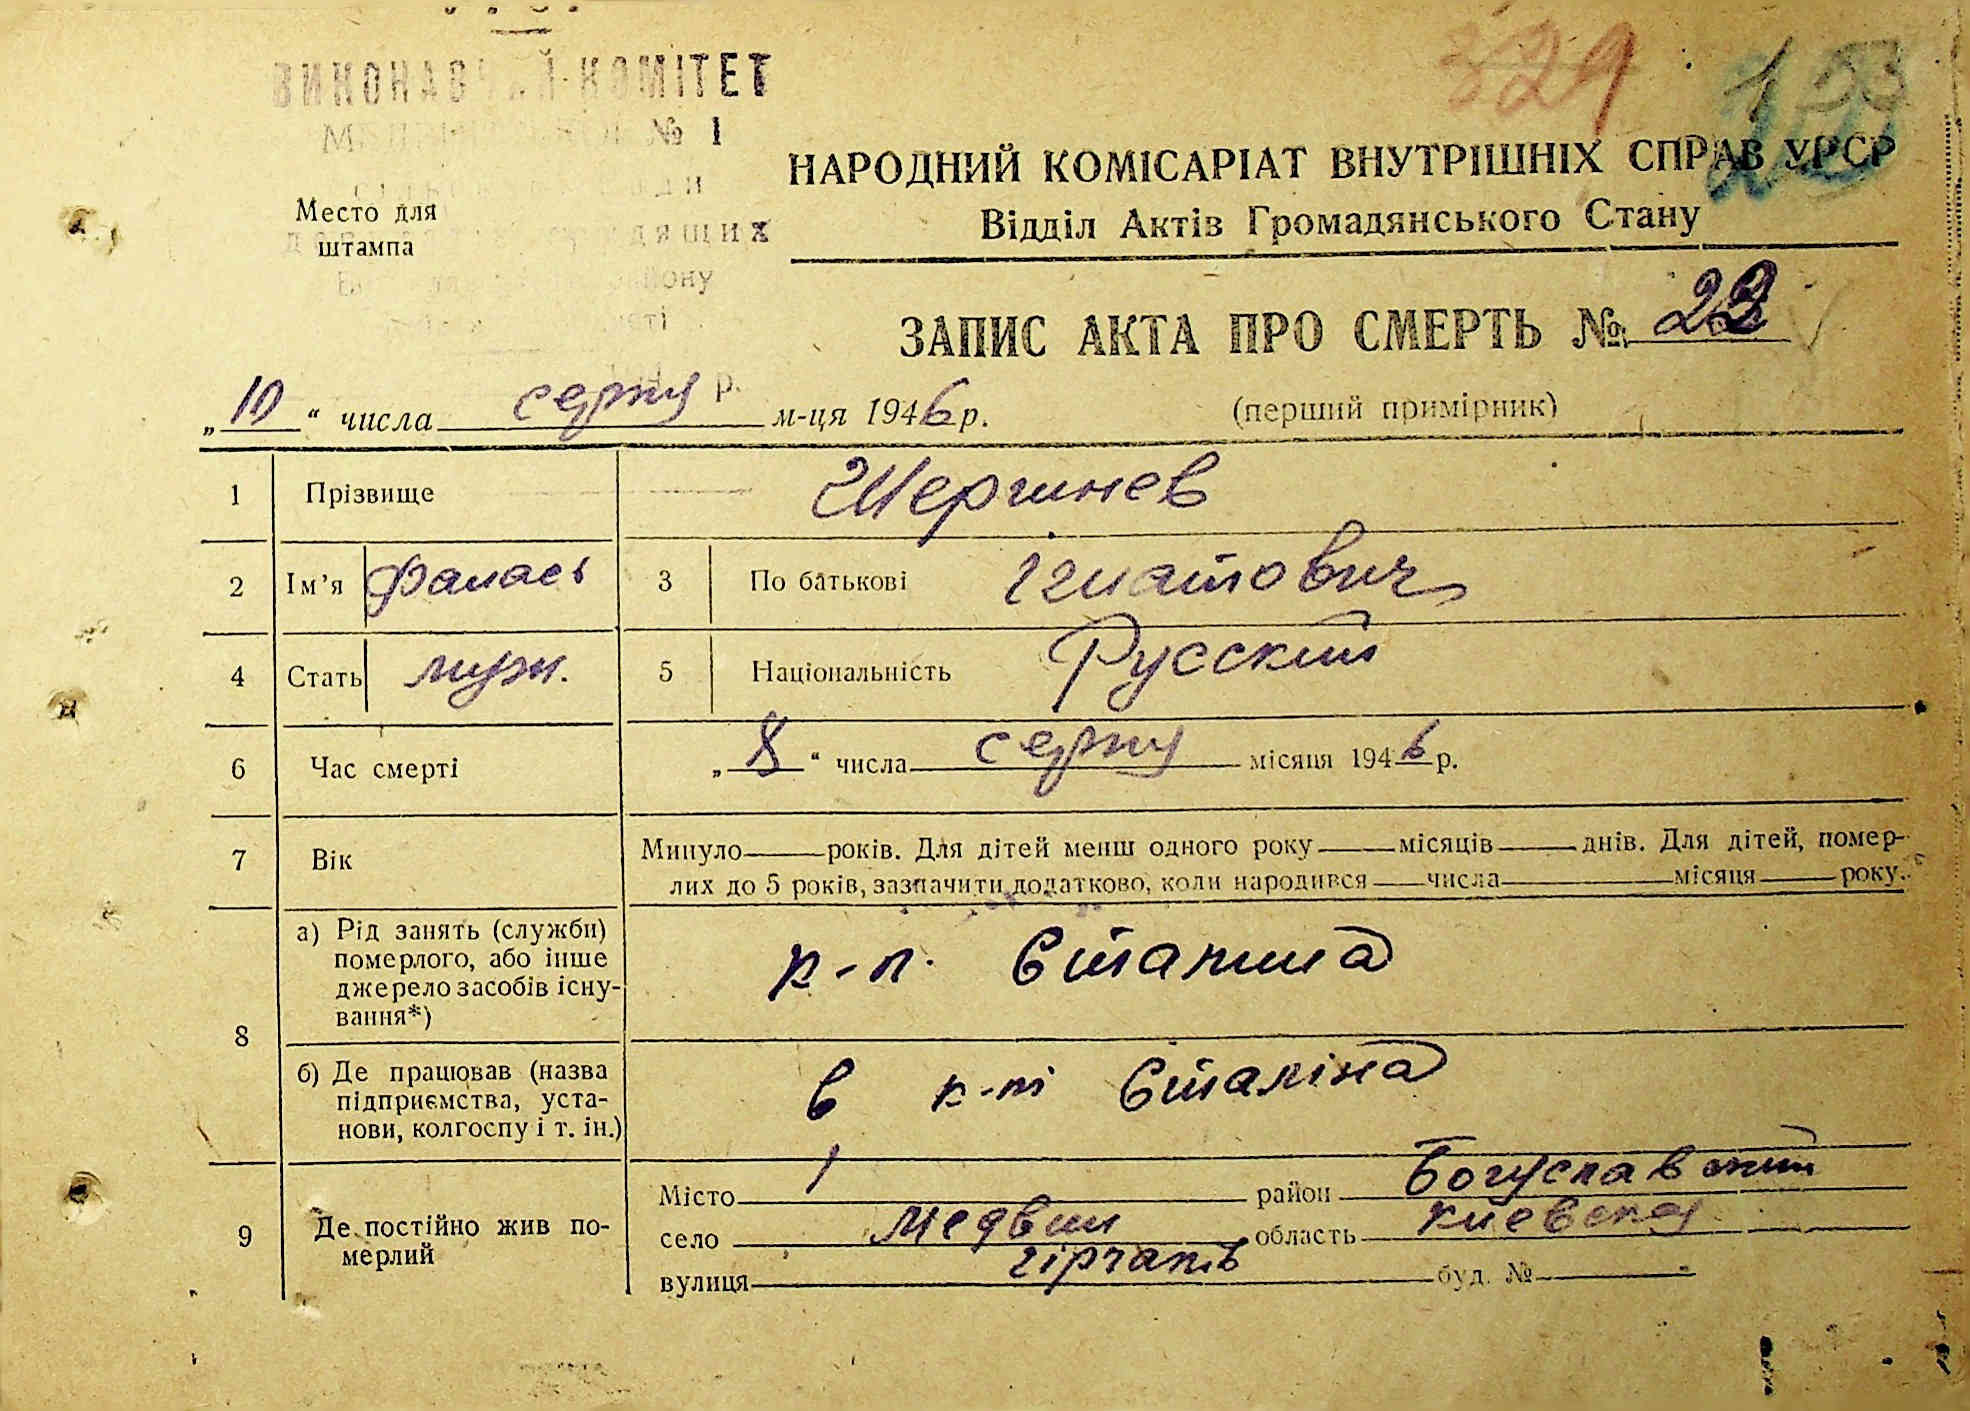 ВИКОНАВЧИЙ КОМІТЕТ
№ 1
329
Место для
штампа
НАРОДНИЙ КОМІСАРІАТ ВНУТРІШНІХ СПРАВ УРСР
Відділ Актів Громадянського Стану
ЗАПИС АКТА ПРО СМЕРТЬ № 22
„10“ числа серпня м-ця 1946 р. (перший примірник)
1 Прізвище
2 Ім’я Фалась 3 По батькові Ігнатович
4 Стать муж. 5 Національність Русский
6 Час смерті „8“ числа серпня місяця 1946 р.
7 Вік Минуло років. Для дітей менш одного року місяців днів. Для дітей, помер-
лих до 5 років, зазначити додатково, коли народився числа місяця року.
8 а) Рід занять (служби)
померлого, або інше
джерело засобів існу-
вання*)
к-п. Сталина
б) Де працював (назва
підприємства, уста-
нови, колгоспу і т. ін.)
в к-пі Сталіна
9 Де постійно жив по-
мерлий
Місто район Богуславский
село Медвин область Киевская
вулиця буд. №